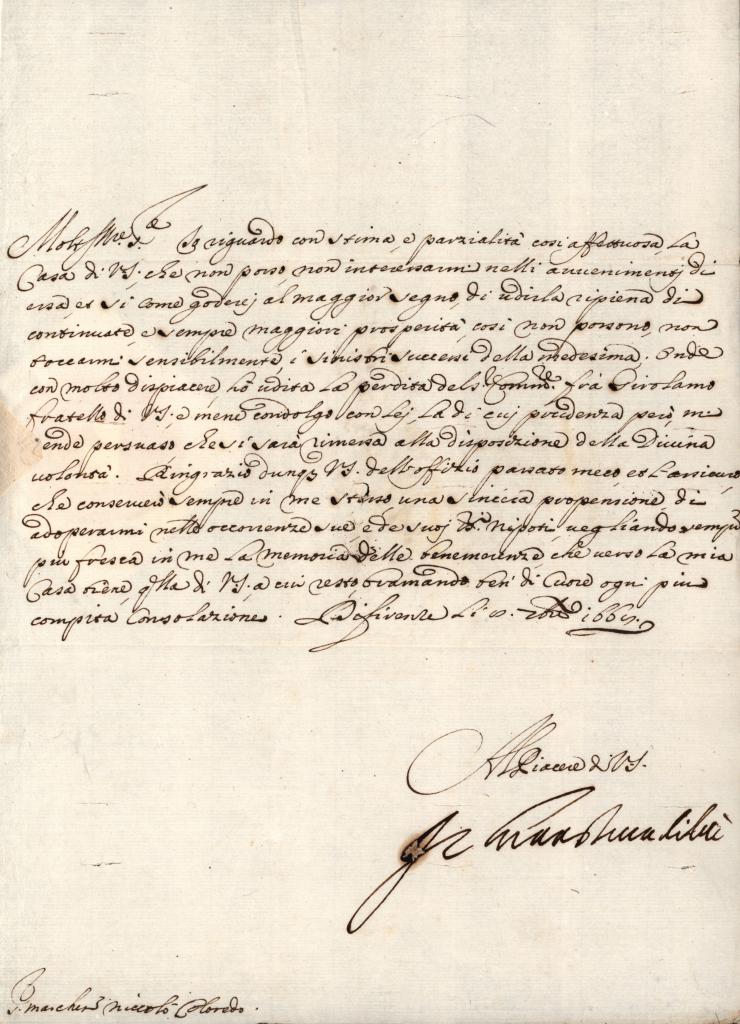 Molt Ill.re S.re Io riguardo con stima, e parzialità cosi affettuosa, La
Casa di V.S. che non posso, non interessarmi nelli avvenimentj di
essa, et si come goderej al maggior segno, di udirla ripiena di
continuate, e sempre maggiori prosperità, cosi non possono, non
toccarmi sensibilmente, i sinistri successi della medesima. Onde
con molto dispiacere hò udita La perdita del S. Comm.re frà Girolamo
fratello di V.S. e mene condolgo con Lej, La di cuj prudenza però, mi
rende persuaso che si sarà rimessa alla disposizione della Divina
volontà. Ringrazio dunq3 V.S. dell'offizio passato meco, et L'assicuro,
che conserverò sempre in me stesso una sincera propensione, di
adoperarmi nelle occorrenze sue, e de suoj SS.ri Nipoti, vegliando sempre
più fresca in me La memoria delle benemerenze, che verso La mia
Casa tiene, q.lla di V.S. a cui resto bramando ben di Cuore ogni più
compita Consolazione. Di firenze Li 166
Al Piacere di V.S.
S. March.se Niccolò Coloredo.